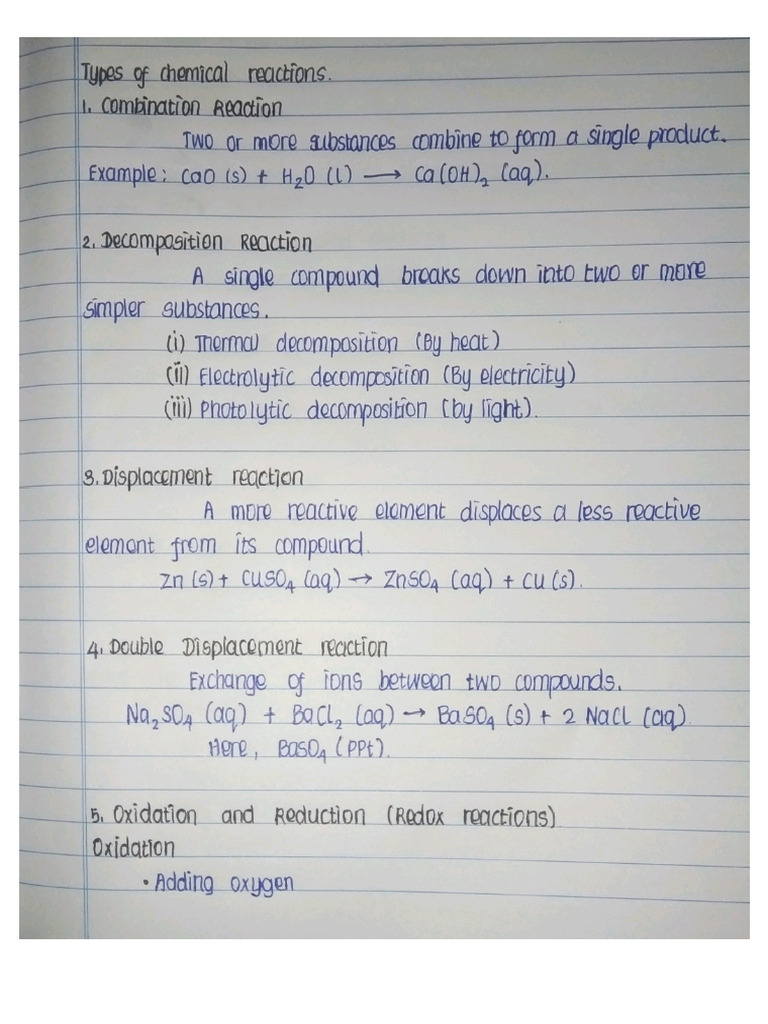 Types of chemical reactions.
1. Combination Reaction
Two or more substances combine to form a single product.
Example: CaO (s) + H₂O (l) ⟶ Ca(OH)₂ (aq).
2. Decomposition Reaction
A single compound breaks down into two or more
simpler substances.
(i) Thermal decomposition (By heat)
(ii) Electrolytic decomposition (By electricity)
(iii) Photolytic decomposition (by light).
3. Displacement reaction
A more reactive element displaces a less reactive
element from its compound.
Zn (s) + CuSO₄ (aq) → ZnSO₄ (aq) + Cu (s).
4. Double Displacement reaction
Exchange of ions between two compounds.
Na₂SO₄ (aq) + BaCl₂ (aq) → BaSO₄ (s) + 2 NaCl (aq)
Here, BaSO₄ (PPt).
5. Oxidation and Reduction (Redox reactions)
Oxidation
• Adding oxygen